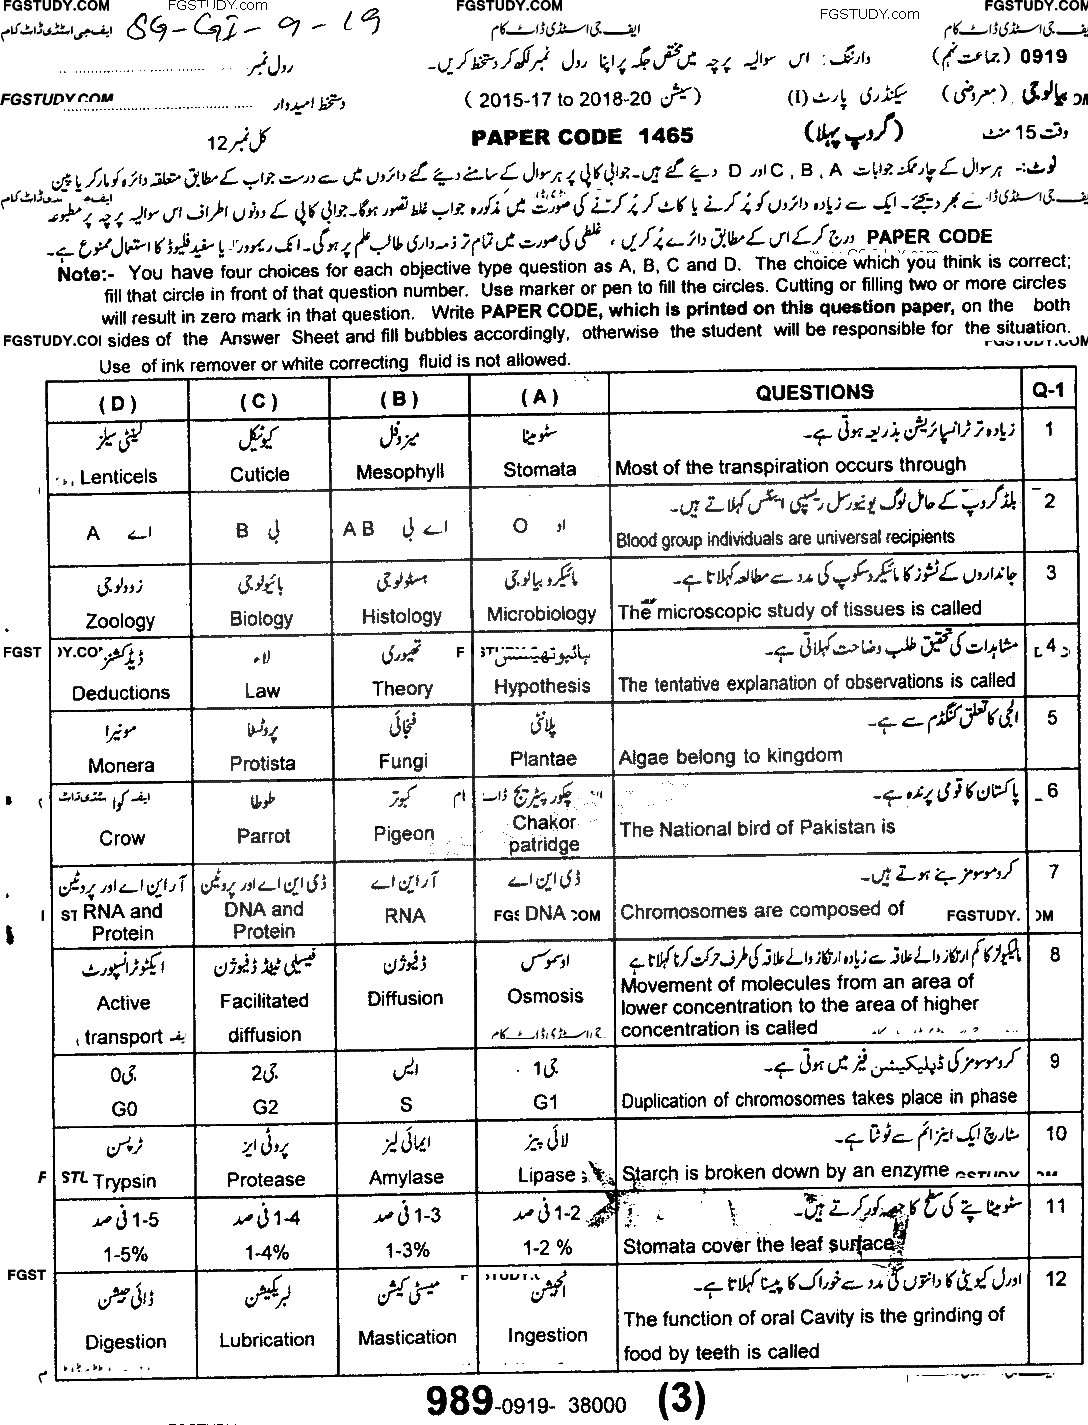 FGSTUDY.COM FGSTUDY.com FGSTUDY.COM FGSTUDY.com FGSTUDY.COM
ایف جی اسٹڈی ڈاٹ کام SG-GI-9-19 ایف جی اسٹڈی ڈاٹ کام ایف جی اسٹڈی ڈاٹ کام
0919 (جماعت نہم) وارننگ: اس سوالیہ پرچہ میں مختص جگہ پر اپنا رول نمبر لکھ کر دستخط کریں۔ رول نمبر
بیالوجی (معروضی) سیکنڈری پارٹ (I) (سیشن 2015-17 to 2018-20) دستخط امیدوار FGSTUDY.COM
وقت 15 منٹ (گروپ پہلا) PAPER CODE 1465 کل نمبر 12
نوٹ:- ہر سوال کے چار ممکنہ جوابات A ، B ، C اور D دیئے گئے ہیں۔ جوابی کاپی پر ہر سوال کے سامنے دیئے گئے دائروں میں سے درست جواب کے مطابق متعلقہ دائرہ کو مارکر یا پین
سے بھر دیجئے۔ ایک سے زیادہ دائروں کو پُر کرنے یا کاٹ کر پُر کرنے کی صورت میں مذکورہ جواب غلط تصور ہوگا۔ جوابی کاپی کے دونوں اطراف اس سوالیہ پرچہ پر مطبوعہ
PAPER CODE درج کر کے اس کے مطابق دائرے پُر کریں ، غلطی کی صورت میں تمام تر ذمہ داری طالب علم پر ہوگی۔ انک ریموور یا سفید فلیوڈ کا استعمال ممنوع ہے۔
Note:- You have four choices for each objective type question as A, B, C and D. The choice which you think is correct;
fill that circle in front of that question number. Use marker or pen to fill the circles. Cutting or filling two or more circles
will result in zero mark in that question. Write PAPER CODE, which is printed on this question paper, on the both
sides of the Answer Sheet and fill bubbles accordingly, otherwise the student will be responsible for the situation.
Use of ink remover or white correcting fluid is not allowed.
(D) (C) (B) (A) QUESTIONS Q-1
لینٹی سیلز کیوٹیکل میزوفل سٹومیٹا زیادہ تر ٹرانسپائریشن بذریعہ ہوتی ہے۔ 1
Lenticels Cuticle Mesophyll Stomata Most of the transpiration occurs through
بلڈ گروپ کے حامل لوگ یونیورسل ریسیپی اینٹس کہلاتے ہیں۔ 2
A اے B بی AB اے بی O او Blood group individuals are universal recipients
زوولوجی بائیولوجی ہسٹولوجی مائیکروبیالوجی جانداروں کے ٹشوز کا مائیکروسکوپ کی مدد سے مطالعہ کہلاتا ہے۔ 3
Zoology Biology Histology Microbiology The microscopic study of tissues is called
ڈیڈکشنز لاء تھیوری ہائپوتھیسس مشاہدات کی تحقیق طلب وضاحت کہلاتی ہے۔ 4
Deductions Law Theory Hypothesis The tentative explanation of observations is called
مونیرا پروٹسٹا فنجائی پلانٹی الجی کا تعلق کنگڈم سے ہے۔ 5
Monera Protista Fungi Plantae Algae belong to kingdom
کوا طوطا کبوتر چکور پیٹریج پاکستان کا قومی پرندہ ہے۔ 6
Crow Parrot Pigeon Chakor patridge The National bird of Pakistan is
آر این اے اور پروٹین ڈی این اے اور پروٹین آر این اے ڈی این اے کروموسومز بنے ہوتے ہیں۔ 7
RNA and Protein DNA and Protein RNA DNA Chromosomes are composed of FGSTUDY.
ایکٹو ٹرانسپورٹ فیسیلی ٹیٹڈ ڈفیوژن ڈفیوژن اوسموسس مالیکیولز کا کم ارتکاز والے علاقہ سے زیادہ ارتکاز والے علاقہ کی طرف حرکت کرنا کہلاتا ہے 8
Active transport Facilitated diffusion Diffusion Osmosis Movement of molecules from an area of
lower concentration to the area of higher
concentration is called
جی0 جی2 ایس جی1 کروموسومز کی ڈپلیکیشن فیز میں ہوتی ہے۔ 9
G0 G2 S G1 Duplication of chromosomes takes place in phase
ٹرپسن پروٹی ایز ایمائی لیز لائی پیز سٹارچ ایک اینزائم سے ٹوٹتا ہے۔ 10
Trypsin Protease Amylase Lipase Starch is broken down by an enzyme
1-5 فی صد 1-4 فی صد 1-3 فی صد 1-2 فی صد سٹومیٹا پتے کی سطح کا حصہ کور کرتے ہیں۔ 11
1-5% 1-4% 1-3% 1-2 % Stomata cover the leaf surface
ڈائی جیشن لبریکیشن میسٹی کیشن انجیشن اورل کیویٹی کا دانتوں کی مدد سے خوراک کا پیسنا کہلاتا ہے۔ 12
Digestion Lubrication Mastication Ingestion The function of oral Cavity is the grinding of
food by teeth is called
989-0919- 38000 (3)